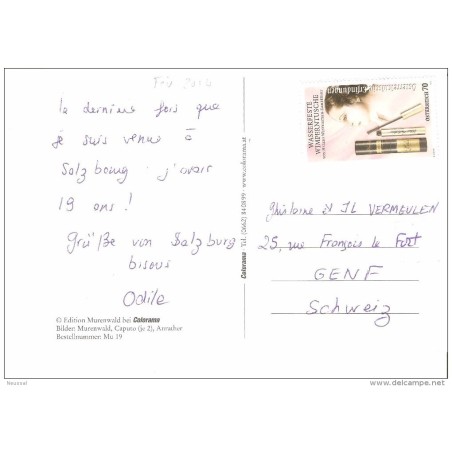 Fév 2014
la dernière fois que
je suis venue à
Salzbourg j'avais
19 ans !
Grüße von Salzburg
bisous
Odile
© Edition Murenwald bei Colorama
Bilder: Murenwald, Caputo (je 2), Anrather
Bestellnummer: Mu 19
Colorama Tel. (0662) 84 08 99 · www.colorama.at
WASSERFESTE
WIMPERNTUSCHE
Österreichische Erfindungen
ÖSTERREICH 70
Ghislaine & JL VERMEULEN
25, rue François le Fort
GENF
Schweiz
Neureal
www.delcampe.net